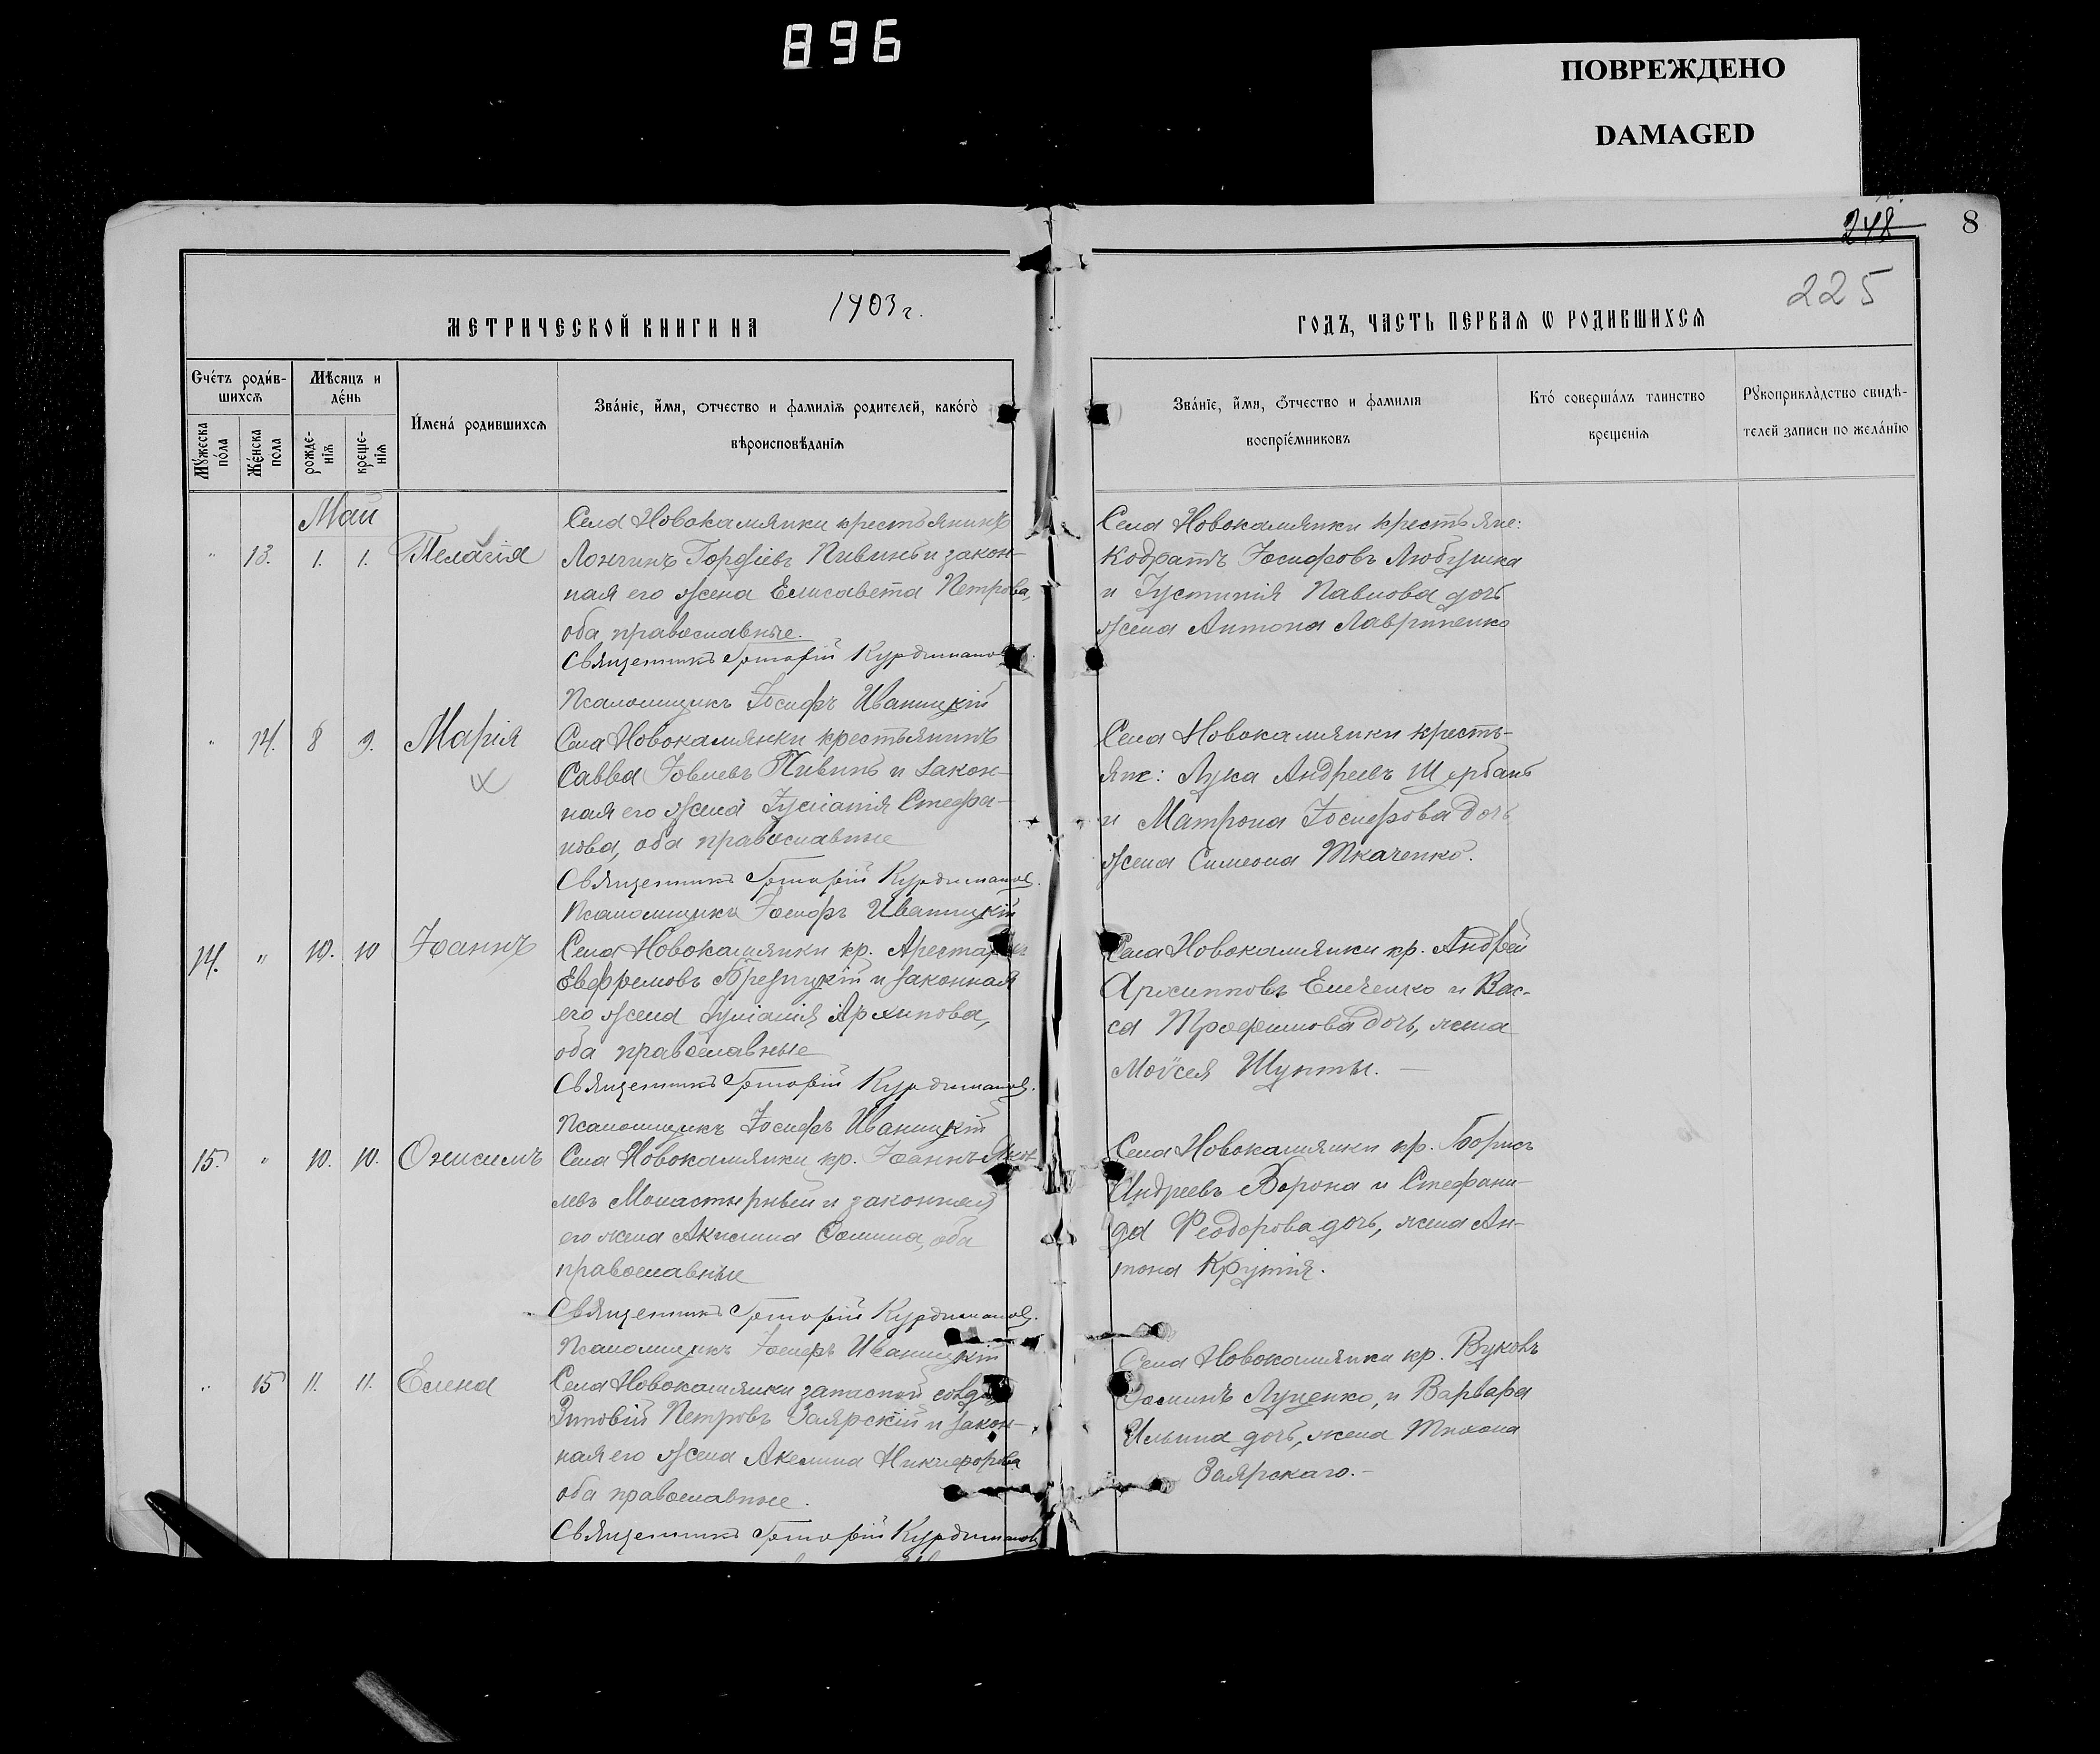 896
ПОВРЕЖДЕНО
DAMAGED
248
8
225
МЕТРИЧЕСКОЙ КНИГИ НА 1903 г.
ГОДЪ, ЧАСТЬ ПЕРВАЯ Ѡ РОДИВШИХСЯ
Счетъ родив-
шихся
Мужеска
пола
Женска
пола
Мѣсяцъ и
день
рожде-
нія
креще-
нія
Имена родившихся
Званіе, имя, отчество и фамилія родителей, какого
вѣроисповѣданія
Званіе, имя, отчество и фамилія
воспріемниковъ
Кто совершалъ таинство
крещенія
Рукоприкладство свидѣ-
телей записи по желанію
Май
" 13. 1. 1. Пелагія
Села Новокамянки крестьянинъ
Лонгинъ Гордіевъ Пивинь и закон-
ная его жена Елисавета Петрова,
оба православные.
Священникъ Григорій Курдиманов
Псаломщикъ Іосифъ Иваницкій
Села Новокамянки крестьяне:
Кодратъ Іосифовъ Любушка
и Іустинія Павлова дочь
жена Антона Лавриненко
" 14. 8 9. Марія
Села Новокамянки крестьянинъ
Савва Іовлевъ Пивинь и закон-
ная его жена Іуліанія Стефа-
нова, оба православные
Священникъ Григорій Курдиманов.
Псаломщикъ Іосифъ Иваницкій
Села Новокамянки кресть-
яне: Лука Андреевъ Щербань
и Матрона Іосифова дочь
жена Симеона Ткаченко.
14. " 10. 10 Іоаннъ
Села Новокамянки кр. Арестархъ
Евфремовъ Брезицкій и законная
его жена Іуліанія Архипова,
оба православные
Священникъ Григорій Курдиманов.
Псаломщикъ Іосифъ Иваницкій
Села Новокамянки кр. Андрей
Архиповъ Емченко и Вас-
са Трофимова дочь, жена
Моѵсея Шунты.
15. " 10. 10. Онисимъ
Села Новокамянки кр. Іоаннъ Яков
левъ Монастырный и законная
его жена Акилина Ѳомина, оба
православные
Священникъ Григорій Курдиманов.
Псаломщикъ Іосифъ Иваницкій
Села Новокамянки кр. Борисъ
Андреевъ Ворона и Стефани-
да Феодорова дочь, жена Ан-
тона Крутія.
" 15 11. 11. Елена
Села Новокамянки запасной солда
Зиновій Петровъ Заярскій и закон-
ная его жена Акелина Никифорова
оба православные.
Священникъ Григорій Курдиманов
Села Новокамянки кр.
Ѳоминъ Луценко, и Варвара
Ильина дочь, жена Тихона
Заярскаго.